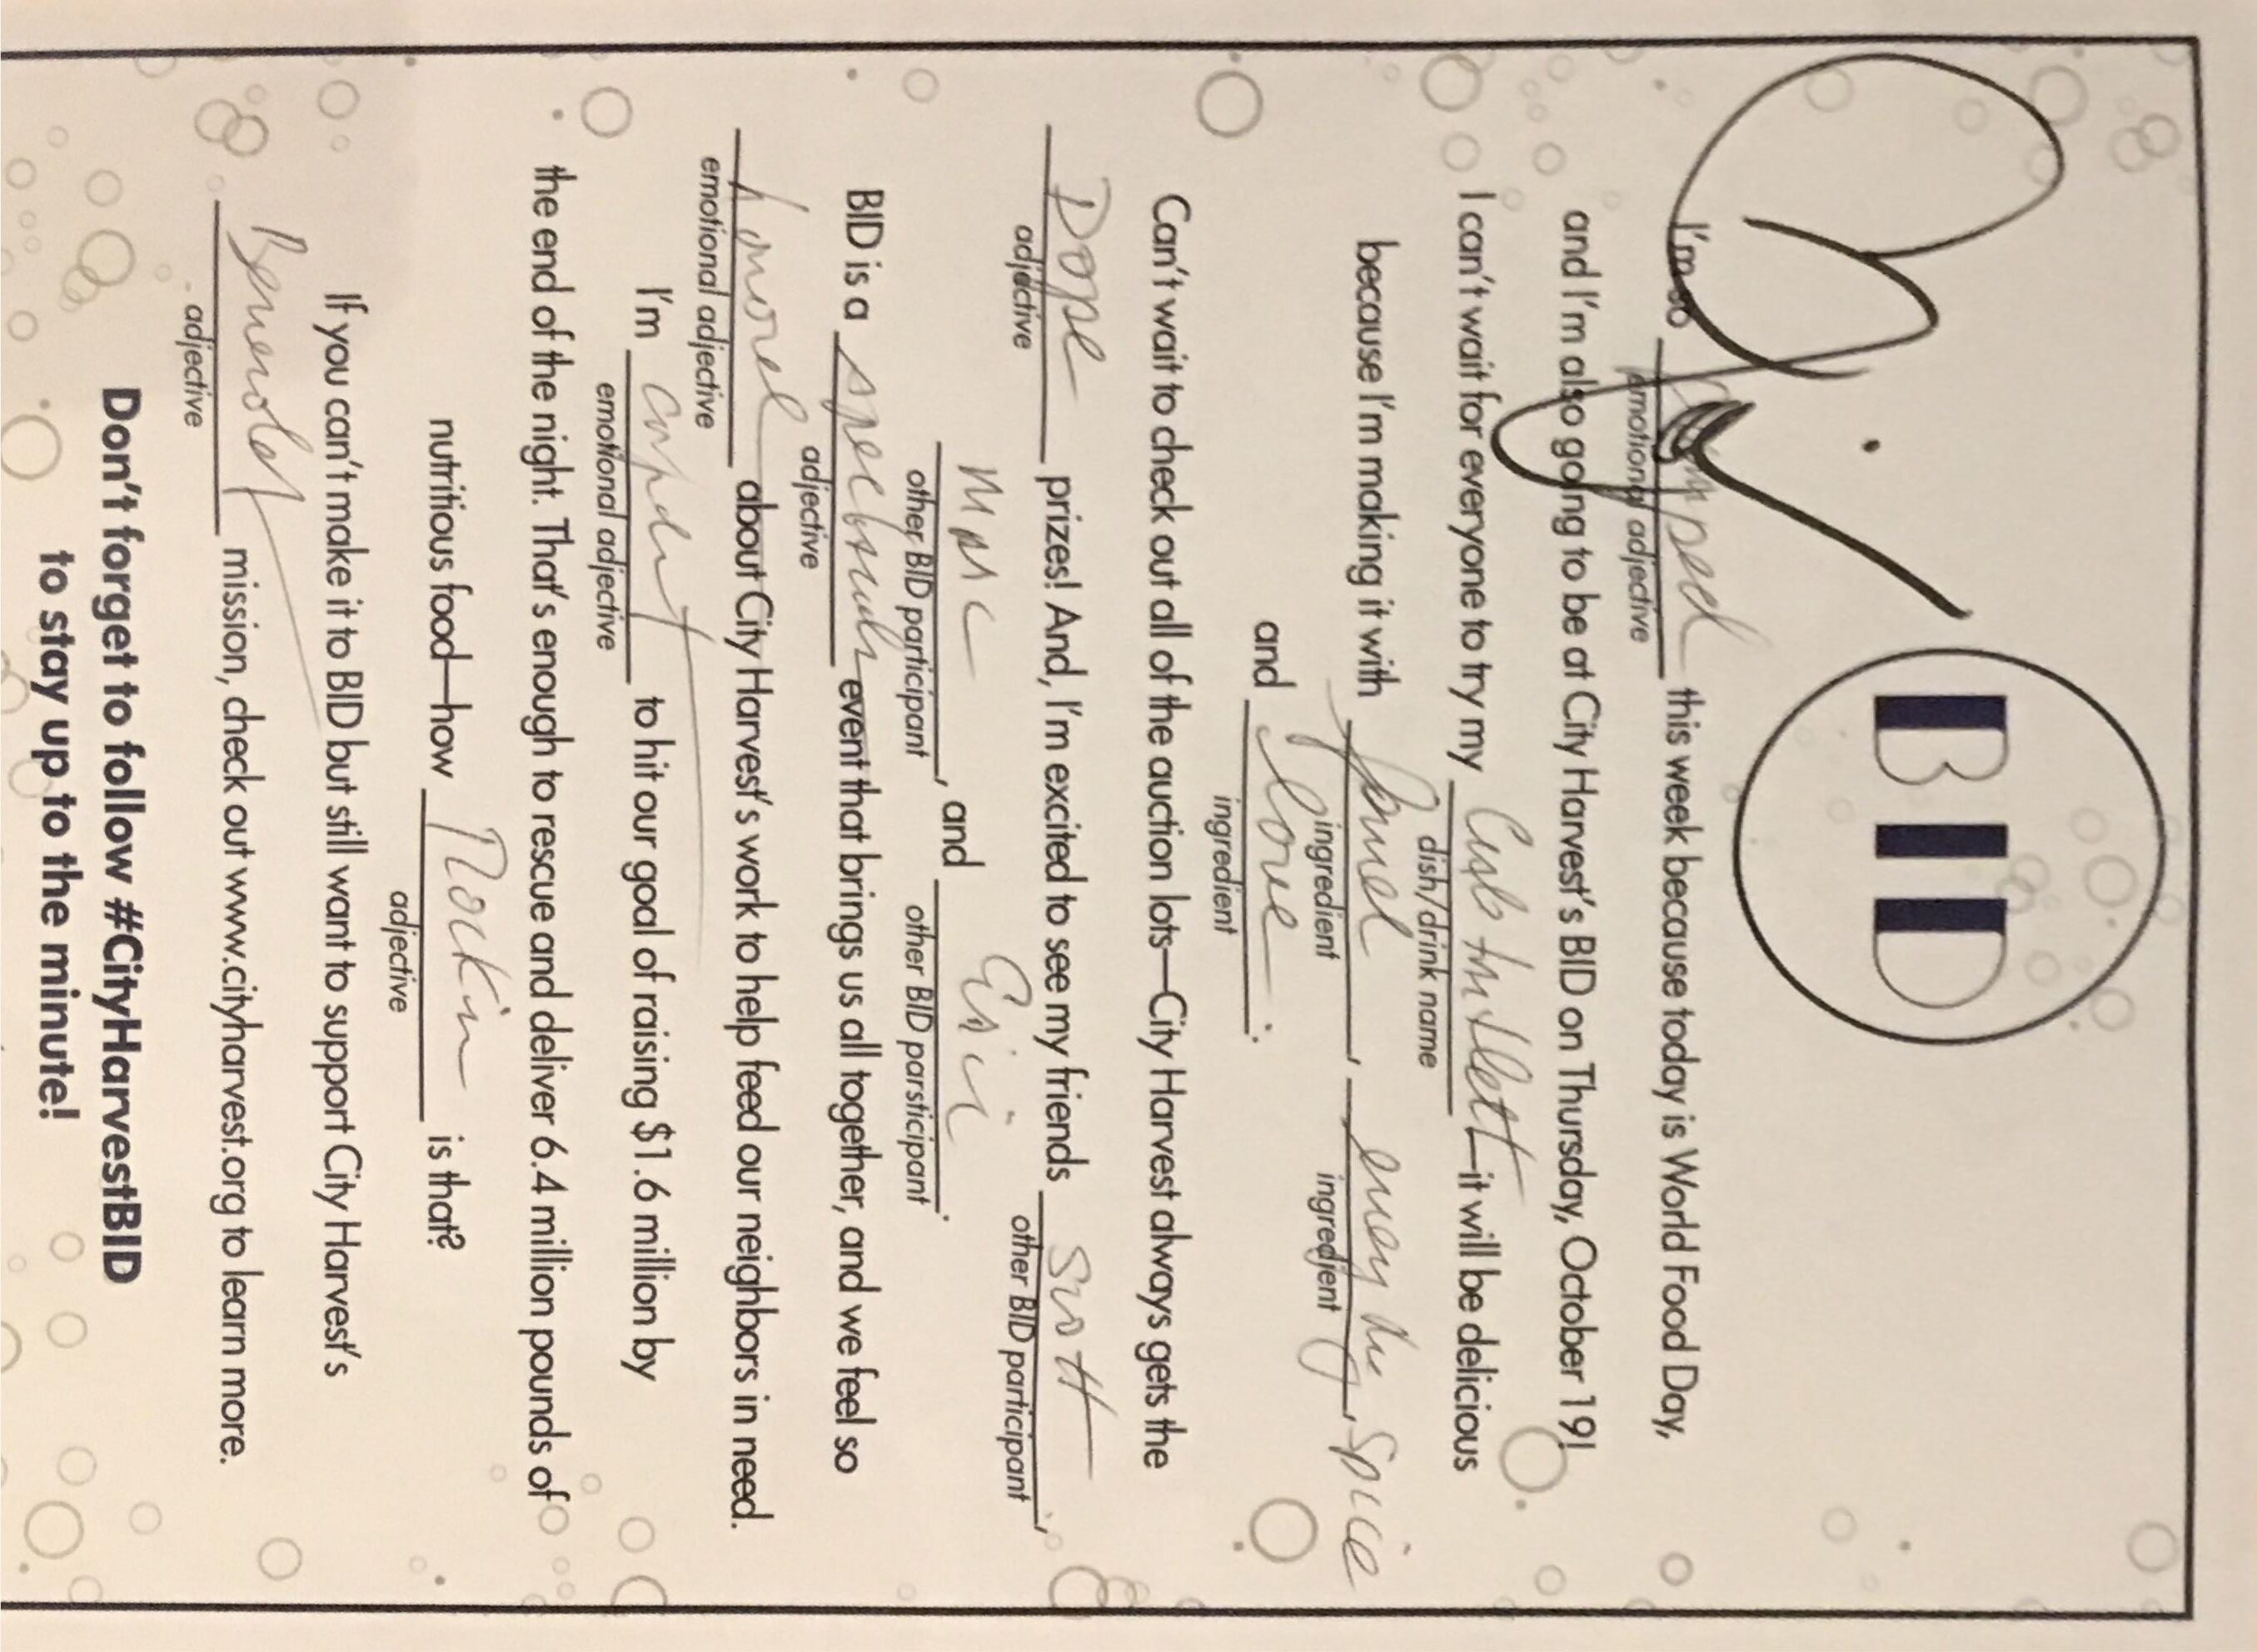 BID
I'm so this week because today is World Food Day,
emotional adjective
and I'm also going to be at City Harvest's BID on Thursday, October 19!
I can't wait for everyone to try my —it will be delicious
dish/drink name
because I'm making it with , , Spice
ingredient ingredient
and love.
ingredient
Can't wait to check out all of the auction lots—City Harvest always gets the
Dope prizes! And, I'm excited to see my friends Scott,
adjective other BID participant
Marc, and Eric.
other BID participant other BID parsticipant
BID is a event that brings us all together, and we feel so
adjective
about City Harvest's work to help feed our neighbors in need.
emotional adjective
I'm to hit our goal of raising $1.6 million by
emotional adjective
the end of the night. That's enough to rescue and deliver 6.4 million pounds of
nutritious food—how Rockin is that?
adjective
If you can't make it to BID but still want to support City Harvest's
mission, check out www.cityharvest.org to learn more.
adjective
Don't forget to follow #CityHarvestBID
to stay up to the minute!